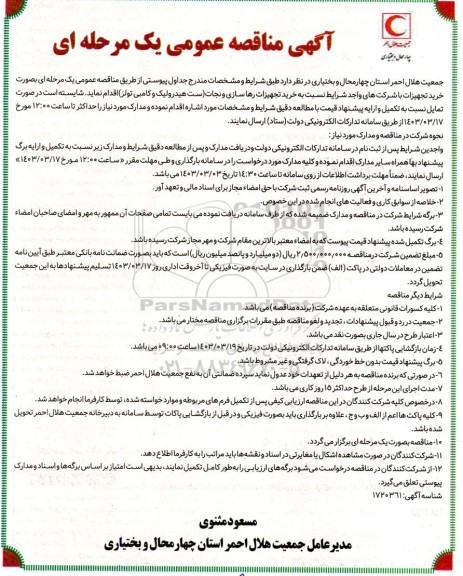 جمعیت هلال احمر
چهارمحال و بختیاری
آگهی مناقصه عمومی یک مرحله ای
جمعیت هلال احمر استان چهارمحال و بختیاری در نظر دارد طبق شرایط و مشخصات مندرج جداول پیوستی از طریق مناقصه عمومی یک مرحله ای بصورت
خرید تجهیزات با شرکت های واجد شرایط نسبت به خرید تجهیزات رهاسازی و نجات (ست هیدرولیک و کامبی تولز) اقدام نماید. شایسته است در صورت
تمایل نسبت به تکمیل و ارایه پیشنهاد قیمت با مطالعه دقیق شرایط و مشخصات مورد اشاره اقدام نموده و مدارک مورد نیاز را حداکثر تا ساعت ۱۲:۰۰ مورخ
۱۴۰۳/۰۳/۱۷ از طریق سامانه تدارکات الکترونیکی دولت (ستاد) ارسال نمایند.
نحوه شرکت در مناقصه و مدارک مورد نیاز :
واجدین شرایط پس از ثبت نام در سامانه تدارکات الکترونیکی دولت و دریافت مدارک و پس از مطالعه دقیق شرایط و مدارک زیر نسبت به تکمیل و ارایه برگ
پیشنهاد بها همراه سایر مدارک اقدام نموده و کلیه مدارک مورد درخواست را در سامانه بارگذاری و طی مهلت مقرر « ساعت ۱۲:۰۰ مورخ ۱۴۰۳/۰۳/۱۷»
ارسال نمایند، ضمناً مهلت برداشت اطلاعات از روی سامانه تا ساعت ۱۴:۳۰ تاریخ ۱۴۰۳/۰۳/۰۳ می باشد.
۱-تصویر اساسنامه و آخرین آگهی روزنامه رسمی ثبت شرکت با حق امضاء مجاز برای اسناد مالی و تعهد آور.
۲-خلاصه از سوابق کاری و فعالیت های انجام شده در این خصوص.
۳-برگه شرایط شرکت در مناقصه و مدارک ضمیمه شده که از طرف سامانه دریافت نموده می بایست تمامی صفحات آن ممهور به مهر و امضای صاحبان امضاء
شرکت رسیده باشد.
۴-برگ تکمیل شده پیشنهاد قیمت پیوست که به امضاء معتبر بالاترین مقام شرکت و مهر مجاز شرکت رسیده باشد.
۵-مبلغ تضمین شرکت در مناقصه ۲/۵۰۰/۰۰۰/۰۰۰ ریال (دو میلیارد و پانصد میلیون ریال) است که باید بصورت ضمانت نامه بانکی معتبر طبق آیین نامه
تضمین در معاملات دولتی در پاکت (الف) ضمن بارگذاری در سایت به صورت فیزیکی تا آخر وقت اداری روز ۱۴۰۳/۰۳/۱۷ تسلیم پیشنهادها به این جمعیت
تحویل گردد.
شرایط دیگر مناقصه
۱-کلیه کسورات قانونی متعلقه به عهده شرکت (برنده مناقصه) می باشد.
۲-جمعیت در رد و قبول پیشنهادات ، تجدید و لغو مناقصه طبق مقررات برگزاری مناقصه مختار می باشد.
۳-اعتبار طرح در سال جاری بصورت نقد می باشد.
۴-زمان بازگشایی پاکتها از طریق سامانه تدارکات الکترونیکی دولت در تاریخ ۱۴۰۳/۰۳/۱۹ ساعت ۰۹:۰۰ می باشد.
۵-برگ پیشنهاد قیمت بدون خط خوردگی ، لاک گرفتگی و غیر مشروط باشد.
۶-در صورتی که برنده مناقصه به هر دلیل از تعهدات خود عدول نماید سپرده ضمانتی آن به نفع جمعیت هلال احمر ضبط خواهد شد.
۷-مدت اجرای این مرحله از طرح حداکثر ۱۵ روز کاری می باشد.
۸-درخصوص کلیه شرکت کنندگان در این مناقصه ارزیابی کیفی پس از تکمیل فرم های مربوطه و موارد خواسته شده، توسط کارفرما انجام خواهد شد.
۹-کلیه پاکت ها اعم از الف و ب و ج ، علاوه بر بارگذاری باید بصورت فیزیکی و در قبل از بازگشایی پاکات توسط سامانه به دبیرخانه جمعیت هلال احمر تحویل
شده باشد.
۱۰-مناقصه بصورت یک مرحله ای برگزار می گردد.
۱۱-شرکت کنندگان در صورت مشاهده اشکال یا مغایرتی در اسناد و نقشه ها باید مراتب را به کارفرما اطلاع دهد.
۱۲-از شرکت کنندگان در مناقصه درخواست می شود برگه های ارزیابی را به طور کامل تکمیل نمایند، بدیهی است امتیاز بر اساس برگه ها و اسناد و مدارک
پیوستی تعلق می گیرد.
شناسه آگهی: ۱۷۲۰۳۶۱
مسعود مثنوی
مدیرعامل جمعیت هلال احمر استان چهارمحال و بختیاری